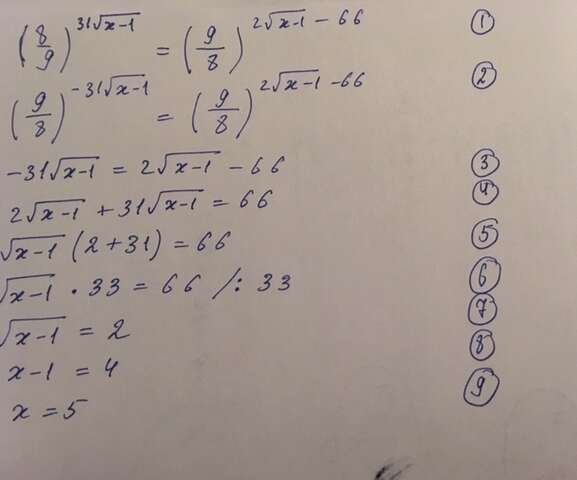 (8/9)^(31√(x-1)) = (9/8)^(2√(x-1) - 66) ①
(9/8)^(-31√(x-1)) = (9/8)^(2√(x-1) - 66) ②
-31√(x-1) = 2√(x-1) - 66 ③
2√(x-1) + 31√(x-1) = 66 ④
√(x-1) (2+31) = 66 ⑤
√(x-1) · 33 = 66 /: 33 ⑥
√(x-1) = 2 ⑦
x-1 = 4 ⑧
x = 5 ⑨